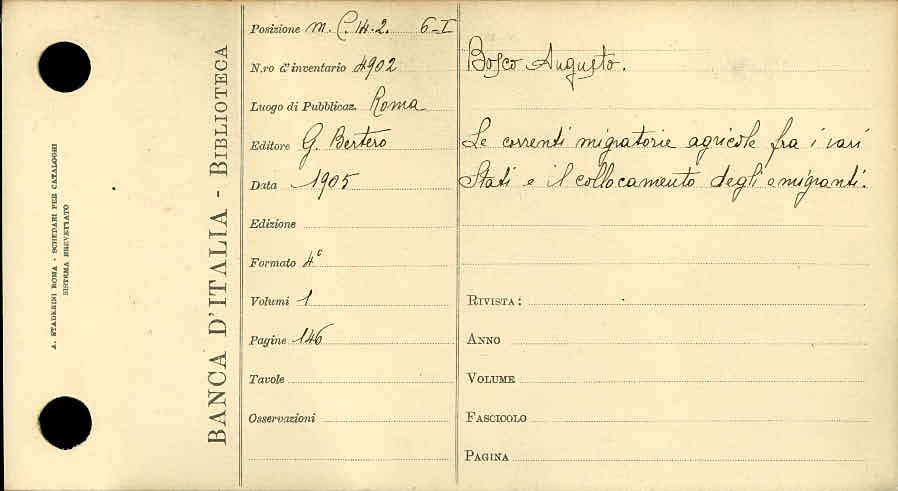 A. STADERINI ROMA - SCHEDARI PER CATALOGHI
SISTEMA BREVETTATO
BANCA D'ITALIA - BIBLIOTECA
Posizione m. C. 14.2. 6-I
N.ro d'inventario 4902
Luogo di Pubblicaz. Roma
Editore G. Bertero
Data 1905
Edizione
Formato 4°
Volumi 1
Pagine 146
Tavole
Osservazioni
Bosco Augusto.
Le correnti migratorie agricole fra i vari
Stati e il collocamento degli emigranti.
RIVISTA:
ANNO
VOLUME
FASCICOLO
PAGINA